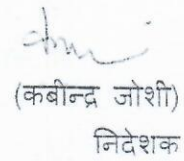 (कबीन्द्र जोशी)
निदेशक